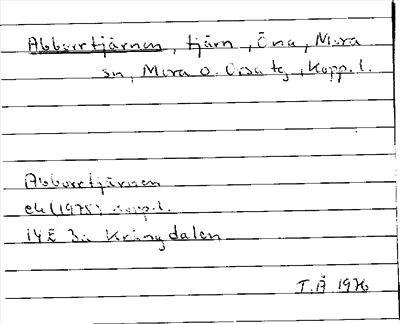 Abborrtjärnen, tjärn, Öna, Mora
sn, Mora o. Orsa tg, Kopp. l.
Abborrtjärnen
ek (1975) Kopp. l.
14E Kringdalen
T.Å 1976